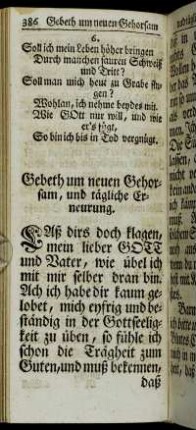 386 Gebeth um neuen Gehorsam
6.
Soll ich mein Leben höher bringen
Durch manchen sauren Schweiß
und Tritt?
Soll man mich heut zu Grabe sin-
gen?
Wohlan, ich nehme beydes mit.
Wie GOtt nur will, und wie
er's fügt,
So bin ich bis in Tod vergnügt.
Gebeth um neuen Gehor-
sam, und tägliche Er-
neurung.
Laß dirs doch klagen,
mein lieber GOTT
und Vater, wie übel ich
mit mir selber dran bin.
Ach ich habe dir kaum ge-
lobet, mich eyfrig und be-
ständig in der Gottseelig-
keit zu üben, so fühle ich
schon die Trägheit zum
Guten, und muß bekennen,
daß